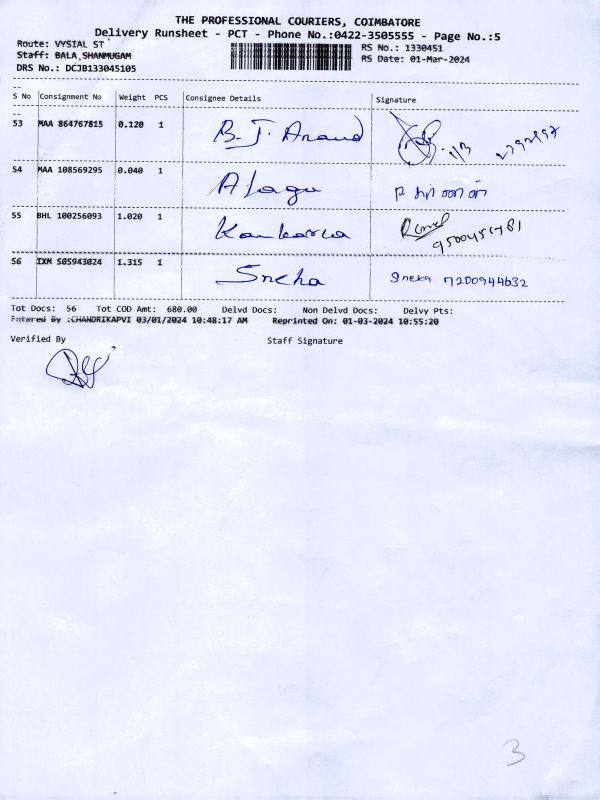 THE PROFESSIONAL COURIERS, COIMBATORE
Delivery Runsheet - PCT - Phone No.:0422-3505555 - Page No.:5
Route: VYSIAL ST
Staff: BALA,SHANMUGAM
DRS No.: DCJB133045105
RS No.: 1330451
RS Date: 01-Mar-2024
S No Consignment No Weight PCS Consignee Details Signature
53 MAA 864767815 0.120 1 B.J. Anand
54 MAA 108569295 0.040 1 Alagu
55 BHL 100256093 1.020 1 Kankaria
56 IXM 505943024 1.315 1 Sneha Sneka 7200944632
Tot Docs: 56 Tot COD Amt: 680.00 Delvd Docs: Non Delvd Docs: Delvy Pts:
Entered By :CHANDRIKAPVI 03/01/2024 10:48:17 AM Reprinted On: 01-03-2024 10:55:20
Verified By Staff Signature
3